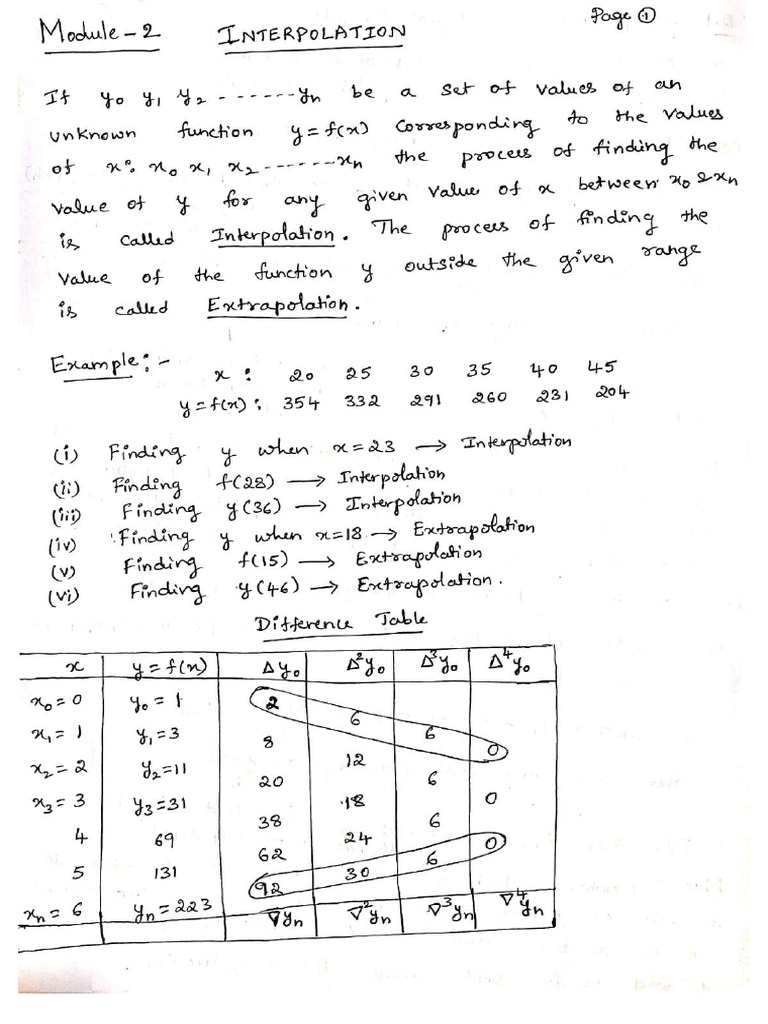 Page ①
Module-2 INTERPOLATION
If y₀ y₁ y₂ - - - - - - yₙ be a set of values of an
unknown function y=f(x) corresponding to the values
of x: x₀ x₁ x₂ - - - - - - xₙ the process of finding the
value of y for any given value of x between x₀ & xₙ
is called Interpolation. The process of finding the
value of the function y outside the given range
is called Extrapolation.
Example:-
x : 20 25 30 35 40 45
y=f(x): 354 332 291 260 231 204
(i) Finding y when x=23 → Interpolation
(ii) Finding f(28) → Interpolation
(iii) Finding y(36) → Interpolation
(iv) Finding y when x=18 → Extrapolation
(v) Finding f(15) → Extrapolation
(vi) Finding y(46) → Extrapolation.
Difference Table
x y=f(x) Δy₀ Δ²y₀ Δ³y₀ Δ⁴y₀
x₀=0 y₀=1 2
6
x₁=1 y₁=3 8 6
0
12
x₂=2 y₂=11 20 6
18 0
x₃=3 y₃=31 38 6
4 69 24
62 0
6
5 131 30
92
xₙ=6 yₙ=223 ∇yₙ ∇²yₙ ∇³yₙ ∇⁴yₙ